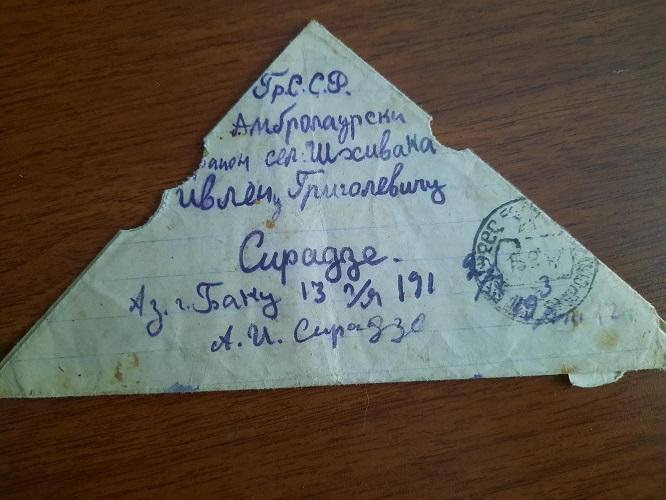 Гр.С.С.Р.
Амбролаурски
район сел. Шхивана
Ивлеиу Григолевичу
Сирадзе.
Аз. г. Баку 13 п/я 191
А. И. Сирадзе
3